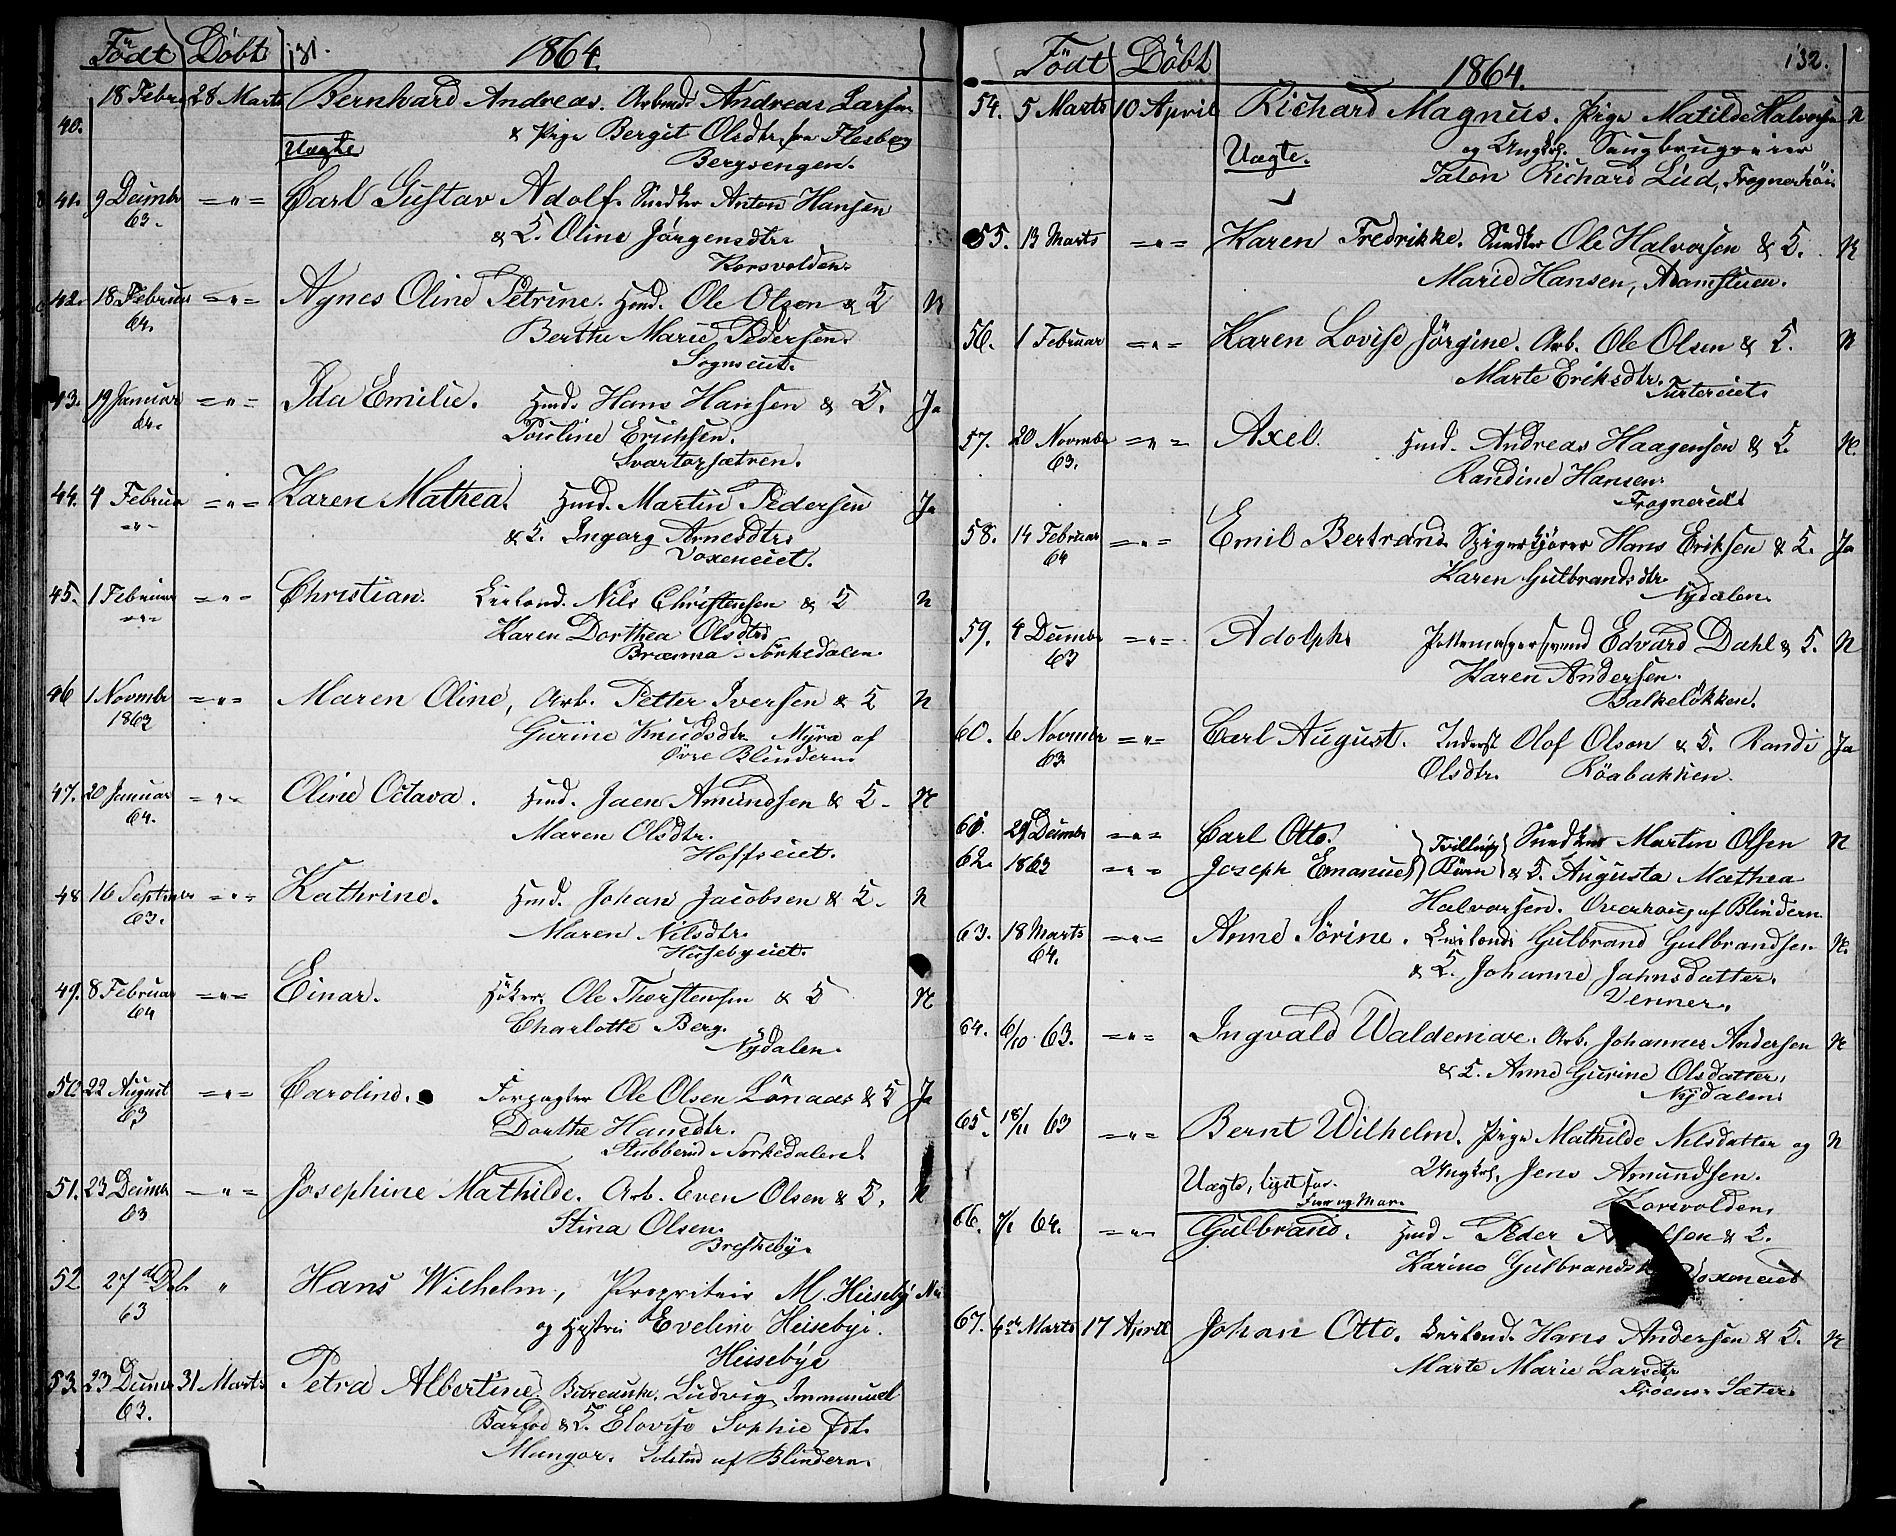 Födt Döbt 131. 1864.
40. 18 Febr 28 Marts Bernhard Andreas. Arbmd. Andreas Larsen
& Pige Bergit Olsdtr. fra Flesberg
Uægte Bergsengen.
41. 9 Decembr 63. = " = Carl Gustav Adolf. Snedker Anton Hansen
& K. Oline Jörgensdtr.
Korsvolden.
42. 18 Februar 64. = " = Agnes Oline Petrine. Husmd. Ole Olsen & K N
Berthe Marie Pedersen.
Sognseiet.
43. 19 Januar 64. = " = Ida Emilie. Husmd. Hans Hansen & K. Ja
Pouline Eriksen.
Svartorsætren.
44. 4 Februar = " = Karen Mathea. Husmd. Martin Pedersen Ja
& K. Ingeborg Arnesdtr.
Voxeneiet.
45. 1 Februar = " = Christian. Leilænd. Nils Christensen & K N
Karen Dorthea Olsdtr.
Brænna - Sörkedalen.
46 1 Novmbr 1863 = " = Maren Oline, Arb. Petter Iversen & K N
Gurine Knudsdtr. Myra af
Övre Blindern.
47. 20 Januar 64. = " = Oline Octava. Husmd. Jaen Amundsen & K. N
Maren Olsdtr.
Hoffseiet.
48 16 Septmbr 63. = " = Kathrine. Husmd. Johan Jacobsen & K. N
Maren Nilsdtr.
Husebyeiet.
49. 8 Februar 64 = " = Einar. Höker. Ole Thorstensen & K N
Charlotte Berg.
Nydalen.
50. 22 August 63 = " = Caroline. Forpagter Ole Olsen Lönaas & K Ja
Dorthe Hansdtr.
Stubberud - Sörkedalen.
51. 23 Decmbr 63 = " = Josephine Mathilde. Arb. Even Olsen & K. N
Stina Olsen.
Breskeby.
52 27de Dcb. 63 " Hans Wilhelm, Proprietair M. Heiseby Nei
og Hustru Eveline Heisebye.
Heisebye
53. 23 Decmr 63. 31 Marts Petra Albertine. Ludvig Immanuel
Barfod & K. Elovise Sophie fdt.
Mungor. Solstad af Blindern.
Födt Döbt 1864. 132.
54. 5 Marts 10 April Richard Magnus. Pige Matilde Halvorsen N
og Ungkrl. Saugbrugseier
Uægte. Taton Richard Lud, Frognerhöi
55. 13 Marts = " = Karen Fredrikke. Snedker Ole Halvorsen & K. N
Marie Hansen, Adamstuen.
56. 1 Februar = " = Karen Lovise Jörgine. Arb. Ole Olsen & K. N
Marte Eriksdtr.
Tuftereiet.
57. 20 Novmbr 63. = " = Axel. Husmd. Andreas Haagensen & K. N.
Randine Hansen.
Frognereiet
58. 14 Februar 64 = " = Emil Bertrand. Spigerkjörer Hans Eriksen & K. Ja
Karen Gulbrandsdtr.
Nydalen.
59. 4 Decmbr 63 = " = Adolph. Pottemagersvend Edvard Dahl & K. N
Karen Andersen.
Balkelökken.
60. 6 Novmbr 63. = " = Carl August. Inderst Olof Olsen & K. Randi Ja
Olsdtr. Röabakken.
61. 29 Decmbr = " = Carl Otto. Tvilling Snedker Martin Olsen N
62. 1863 = " = Joseph Emanuel Börn & K. Augusta Mathea
Halvorsen. Overhaug af Blindern
63. 18 Marts 64. = " = Anne Sörine. Leilænd. Gulbrand Gulbrandsen N.
& K. Johanne Jahnsdatter.
Venner.
64. 6/10 63. = " = Ingvald Waldemar. Arb. Johannes Andersen N
& K. Anne Gurine Olsdatter.
Nydalen.
65. 18/11 63 = " = Bernt Wilhelm. Pige Mathilde Nilsdatter og N
Ungkrl. Jens Amundsen.
Uægte, 1ste for Far og Mor. Korsvolden.
66. 7/1 64. = " = Gulbrand. Husmd. Peder & K.
Karine Voxeneiet
67. 6de Marts 17 April Johan Otto. Leilænd. Hans Andersen & K. N
Marte Marie Larsdtr.
Froens Sæter.